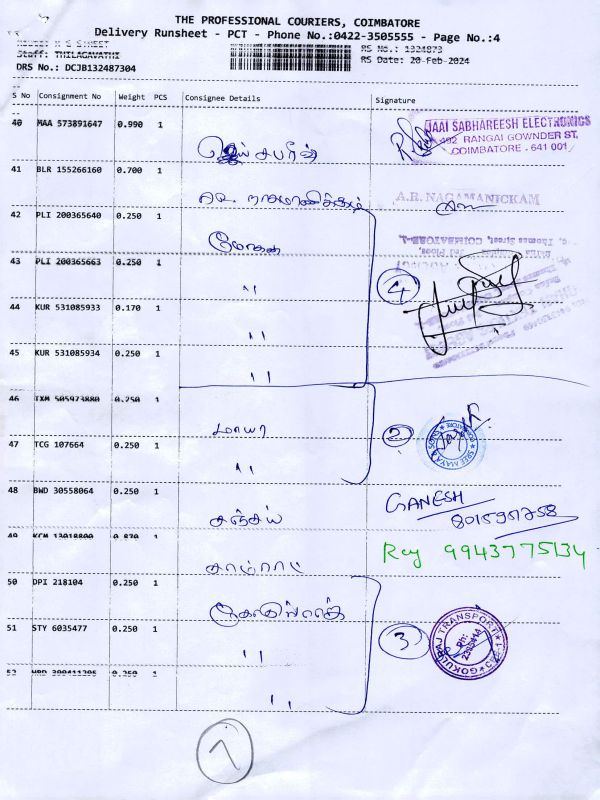 THE PROFESSIONAL COURIERS, COIMBATORE
Delivery Runsheet - PCT - Phone No.:0422-3505555 - Page No.:4
Staff: THILAGAVATHI
RS No.: 1324873
DRS No.: DCJB132487304
RS Date: 20-Feb-2024
S No Consignment No Weight PCS Consignee Details Signature
40 MAA 573891647 0.990 1
JAAI SABHAREESH ELECTRONICS
492 RANGAI GOWNDER ST,
COIMBATORE - 641 001
41 BLR 155266160 0.700 1
A.R. NAGAMANICKAM
42 PLI 200365640 0.250 1 மோகன
43 PLI 200365663 0.250 1 "
4
44 KUR 531085933 0.170 1 "
45 KUR 531085934 0.250 1 "
46 TXM 505973880 0.250 1 மாயா
2
47 TCG 107664 0.250 1 "
48 BWD 30558064 0.250 1 சஞ்சய் GANESH
8015951758
49 KCM 13018800 0.870 1
9943775134
50 DPI 218104 0.250 1
51 STY 6035477 0.250 1 " 3
GOKULRAJ TRANSPORT
52 0.250 1 "
7